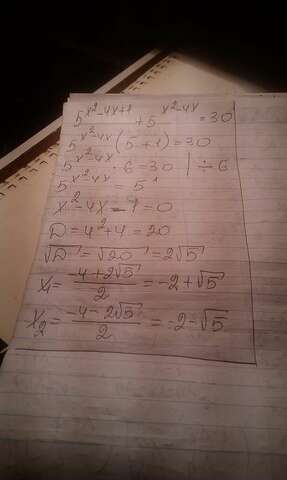 5^{x²-4x+1} + 5^{x²-4x} = 30
5^{x²-4x} (5+1) = 30
5^{x²-4x} · 6 = 30 | ÷ 6
5^{x²-4x} = 5¹
x² - 4x - 1 = 0
D = 4² + 4 = 20
√D = √20 = 2√5
x₁ = (-4+2√5)/2 = -2+√5
x₂ = (-4-2√5)/2 = -2-√5